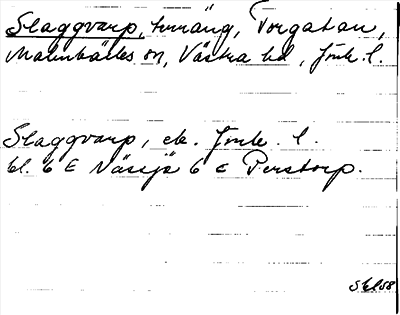 Slaggvarp, terräng, Torgatan,
Malmbäcks sn, Västra hd, Jönk. l.
Slaggvarp, ek. Jönk. l.
bl. 6 E Näsjö 6 E Perstorp.